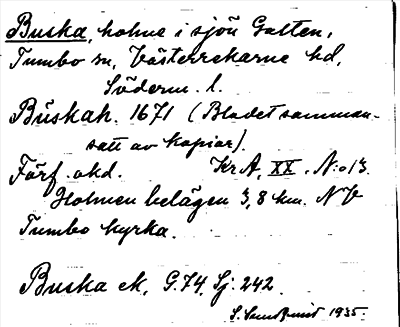 Buska, holme i sjön Galten,
Tumbo sn, Västerrekarne hd,
Söderm. l.
Buskah. 1671 (Bladet samman-
satt av kopior).
Förf. okd. KrA, XX, N:o 13.
Holmen belägen 3,8 km. NV
Tumbo kyrka.
Buska ek, G.74, Sj: 242.
S. Sundqvist 1935.